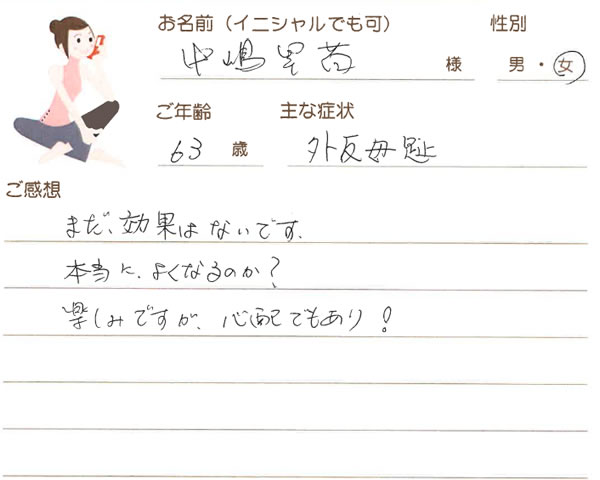 お名前（イニシャルでも可） 性別
中嶋里苗 様 男・女
ご年齢 主な症状
63 歳 外反母趾
ご感想
まだ、効果はないです。
本当に、よくなるのか？
楽しみですが、心配でもあり！